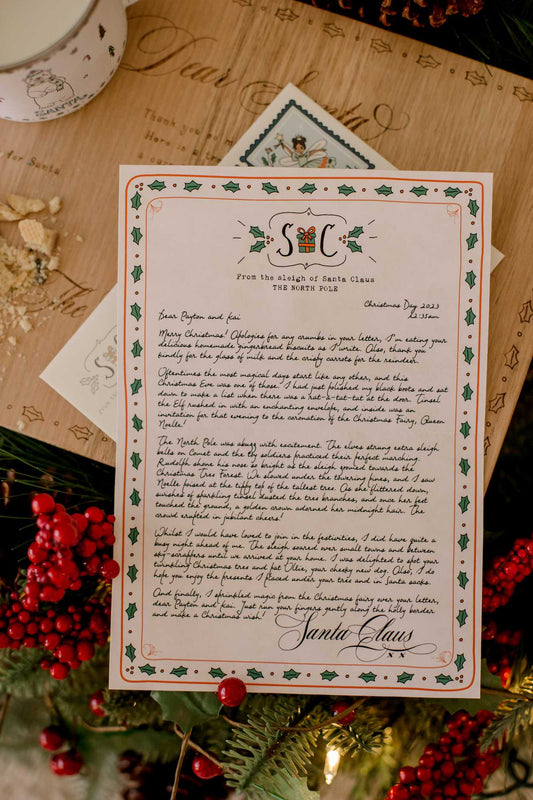 SANTA
Dear Santa
Thank you
Here is a
for Santa
The
S C
From the sleigh of Santa Claus
THE NORTH POLE
Christmas Day 2023
12:35am
Dear Payton and Kai
Merry Christmas! Apologies for any crumbs in your letter, I'm eating your
delicious homemade gingerbread biscuits as I write. Also, thank you
kindly for the glass of milk and the crispy carrots for the reindeer.
Oftentimes the most magical days start like any other, and this
Christmas Eve was one of those. I had just polished my black boots and sat
down to make a list when there was a rat-a-tat-tat at the door. Tinsel
the Elf rushed in with an enchanting envelope, and inside was an
invitation for that evening to the coronation of the Christmas Fairy, Queen
Noelle!
The North Pole was abuzz with excitement. The elves strung extra sleigh
bells on Comet and the toy soldiers practiced their perfect marching.
Rudolph shone his nose so bright as the sleigh zoomed towards the
Christmas Tree Forest. We slowed under the towering pines, and I saw
Noelle poised at the tippy top of the tallest tree. As she fluttered down,
swished of sparkling tinsel dusted the tree branches, and once her feet
touched the ground, a golden crown adorned her midnight hair. The
crowd erupted in jubilant cheers!
Whilst I would have loved to join in the festivities, I did have quite a
busy night ahead of me. The sleigh soared over small towns and between
sky-scrappers until we arrived at your home. I was delighted to spot your
twinkling Christmas tree and pat Ollie, your cheeky new dog. Also, I do
hope you enjoy the presents I placed under your tree and in Santa sacks.
And finally, I sprinkled magic from the Christmas fairy over your letter,
dear Payton and Kai. Just run your fingers gently along the holly border
and make a Christmas wish!
Santa Claus
x x